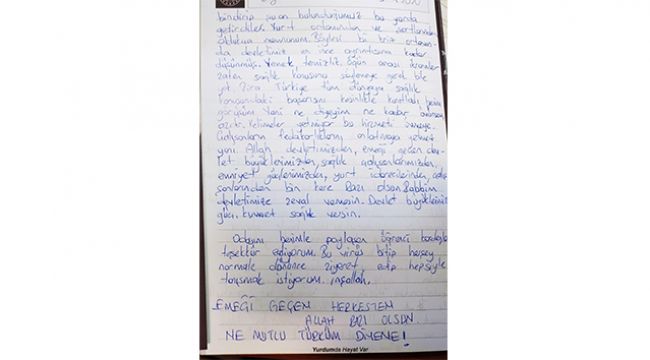 bindirip şuan bulunduğumuz bu yurda
getirdiler. Yurt ortamından ve şartlarından
oldukça memnunum. Böylesi bir kriz ortamın-
da devletimiz en ince ayrıntısına kadar
düşünmüş. Yemek, temizlik, öğün arası ikramlar
zaten sağlık konusunu söylemeye gerek bile
yok. Zira, Türkiye tüm dünyaya sağlık
konusundaki başarısını kesinlikle kanıtladı, benim
görüşüm. Yani ne diyeyim ne kadar
azdır. Kelimeler yetmiyor bu hizmeti övmeye.
Çalışanların fedakarlıklarını anlatmaya yetmez
yani Allah devletimizden, emeği geçen dev-
let büyüklerimizden, sağlık çalışanlarımızdan,
emniyet güçlerimizden, yurt idarecilerinden, çalı-
şanlarından bin kere Razı olsun. Rabbim
devletimize zeval vermesin. Devlet büyüklerimize
güç, kuvvet sağlık versin.
Odasını benimle paylaşan öğrenci kardeşime
teşekkür ediyorum. Bu virüs bitip herşey
normale dönünce ziyaret edip hepsiyle
tanışmak istiyorum. inşallah.
EMEĞİ GEÇEN HERKESTEN
ALLAH RAZI OLSUN.
NE MUTLU TÜRKÜM DİYENE!
Yurdumda Hayat Var